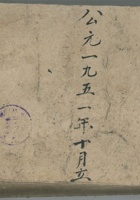 公元一九五一年十月立